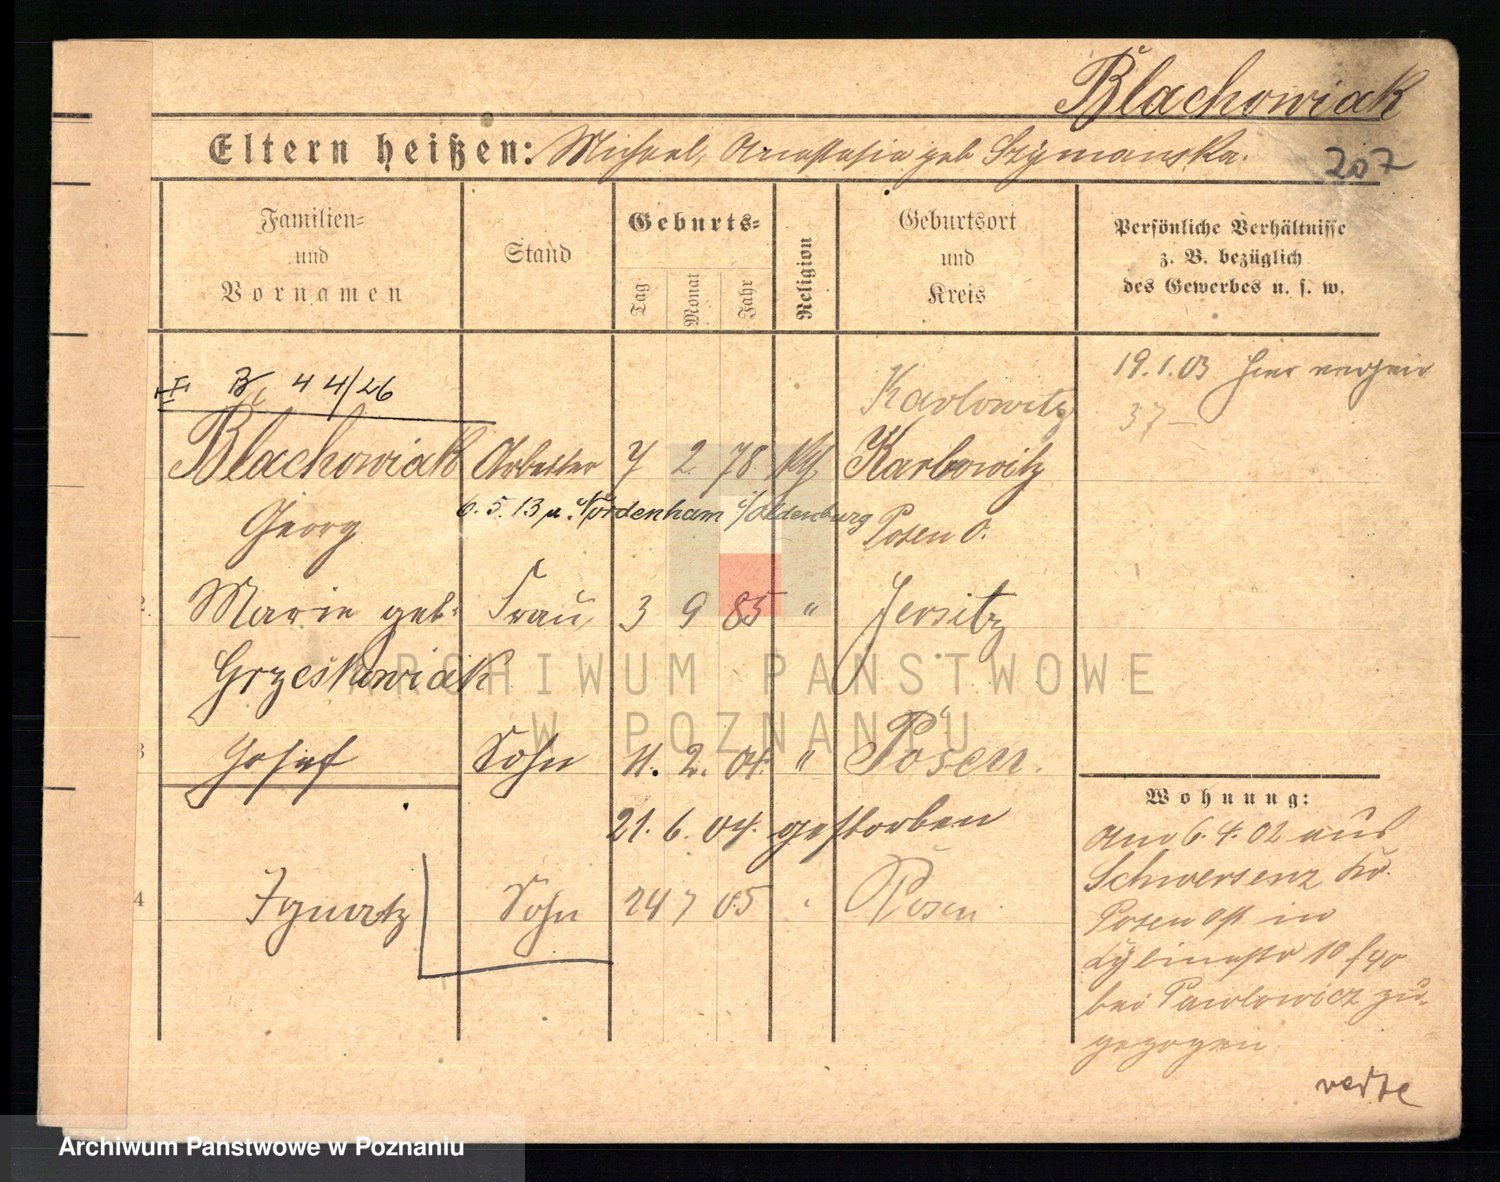 Blachowiak
Eltern heißen: Michael, Anastasia geb Szymanska.
207
Familien=
und
Vornamen
Stand
Geburts=
Tag
Monat
Jahr
Religion
Geburtsort
und
Kreis
Persönliche Verhältnisse
z. B. bezüglich
des Gewerbes u. s. w.
19.1.03 hier
37-
44/26
Karlowitz
Blachowiak Arbeiter 7 2 78 Kth Karlowitz
6.5.13 n. Nordenham i/Oldenburg
Georg Posen O.
2. Marie geb. Frau 3 9 85 " Jersitz
Grześkowiak
3 Josef Sohn 11. 2. 04. " Posen.
21. 6. 04. gestorben
4 Ignatz Sohn 24 7 05 Posen
Wohnung:
Am 6.4.02 aus
Schwersenz Kr.
Posen Ost in
10
bei Pawlowicz zu-
gezogen
verte
ARCHIWUM PAŃSTWOWE
W POZNANIU
Archiwum Państwowe w Poznaniu